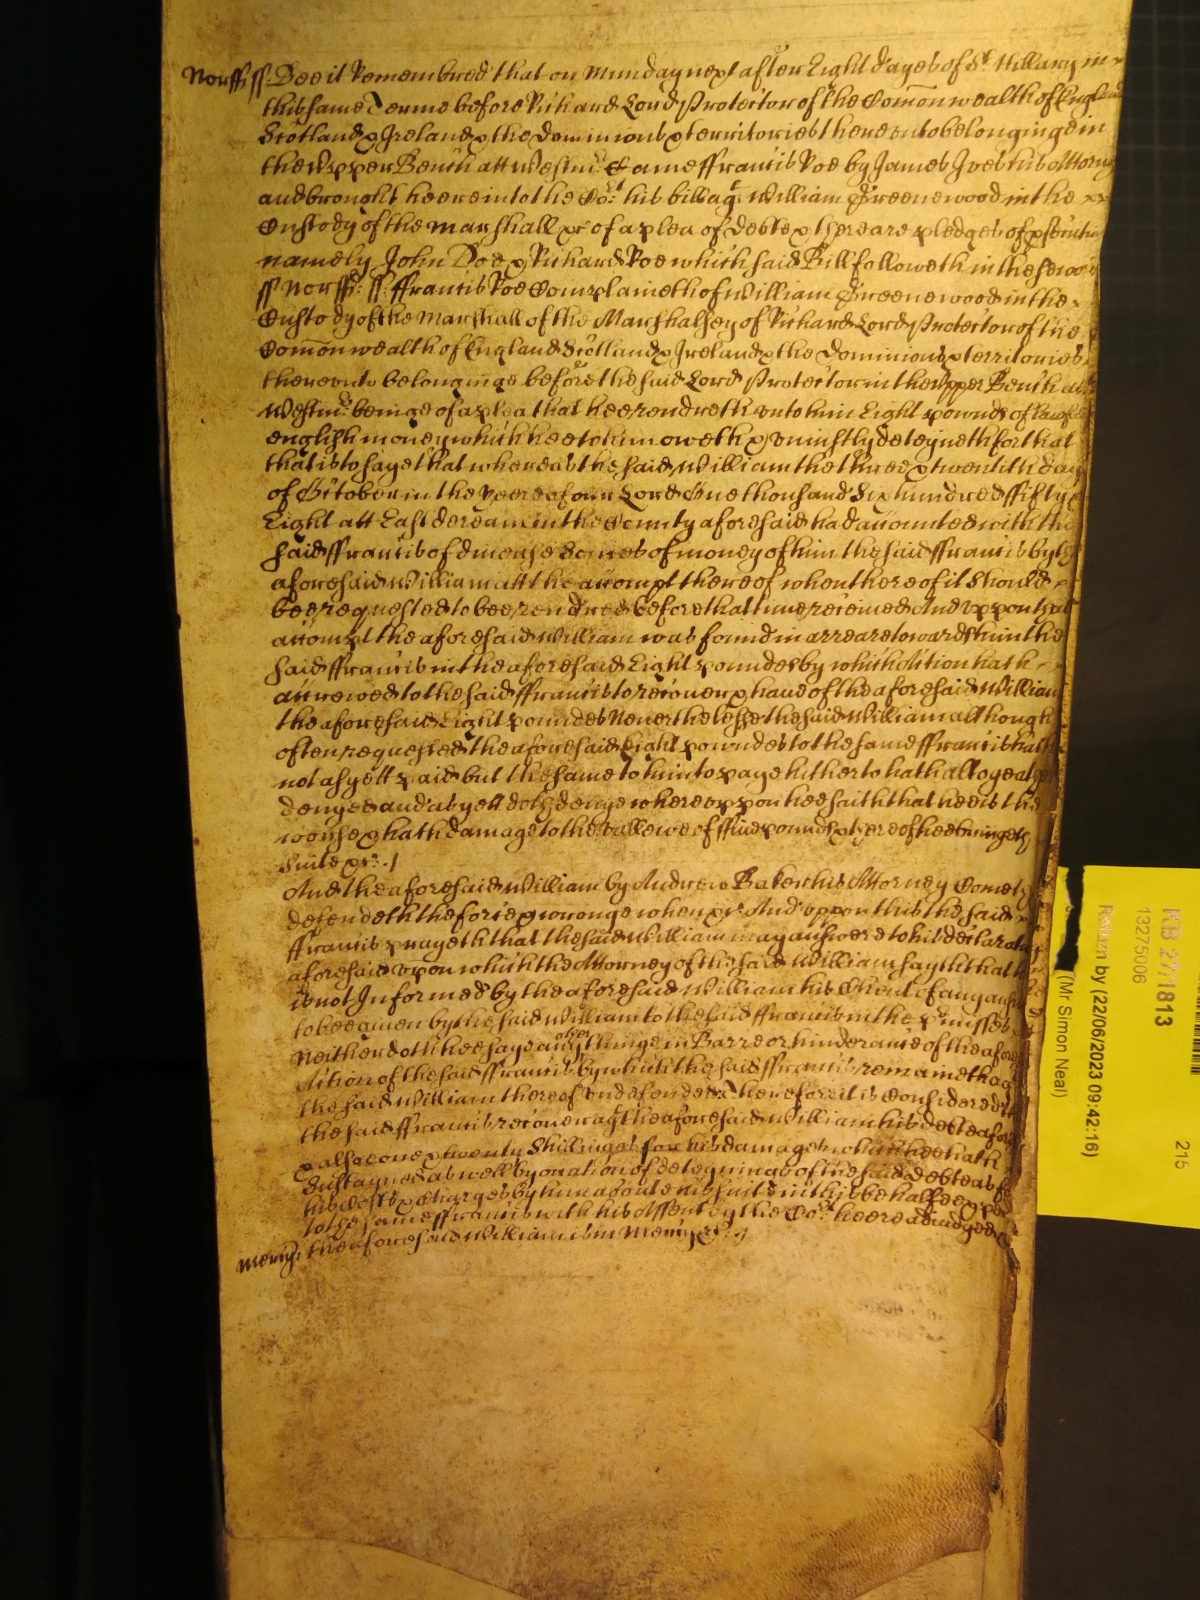 Norff ss. Bee it Remembred that on Munday next after Eight dayes of St. Hillary in
this same Terme before Richard Lord Protector of the Comonwealth of England
Scotland & Ireland & the dominions & territories thereunto belonginge in
the Upper Bench att Westmr. Came ffrancis Roe by James Ives his Attorny
and brought heere into the Cort. his bill agt. William Greenewood in the
Custody of the Marshall &c of a plea of debte & there are pledges of psecution
namely John Doe & Richard Roe which said Bill followeth in these words
ss Norff. ss. ffrancis Roe Complaineth of William Greenewood in the
Custody of the Marshall of the Marshalsey of Richard Lord Protector of the
Comonwealth of England Scotland & Ireland & the Dominions & territories
thereonto belonginge before the said Lord Protector in the Upper Bench att
Westmr. beinge of a plea that hee rendreth unto him Eight pownds of lawfull
english money which hee to him oweth & uniustly deteyneth for that
that is to saye that whereas the said William the three & twentith day
of October in the yeere of our Lord One thousand Six hundred ffifty &
Eight att East dereham in the County aforesaid had accounted with the
said ffrancis of diverse somes of money of him the said ffrancis by the
aforesaid William att the accompt thereof when thereof it should
bee requested to bee rendred before that time received And uppon that
accompt the aforesaid William was found in arreare towards him the
said ffrancis in the aforesaid Eight poundes by which Action hath
accrewed to the said ffrancis to recover & have of the aforesaid William
the aforesaid Eight poundes Neverthelesse the said William although
often requested the aforesaid Eight powndes to the same ffrancis hath
not as yett paid but the same to him to paye hitherto hath altogeather
denyed and as yett doth denye whereuppon hee saith that hee is the
worse & hath damage to the vallewe of ffive pounds & thereof hee bringeth
Suite &c. /
And the aforesaid William by Andrew Baker his Attorney Cometh
defendeth the force & wronge when &c And uppon this the said
ffrancis prayeth that the said William may answere to his declaration
aforesaid upon which the Attorney of the said William sayth that
is not Informed by the aforesaid William his Client of any answere
to bee given by the said William to the said ffrancis in the p'misses
Neither doth hee saye any other thinge in Barre or hinderance of the afore
Action of the said ffrancis by which the said ffrancis remaineth ag
the said William thereof undefended Therefore it is Considered
the said ffrancis recover agt the aforesaid William his debte afores
& alsoe one & twenty Shillinges for his damages which hee hath
Sustayned as well by occation of deteyninge of the said debte as for
his Costs & Charges by him aboute his suite in this behalfe expe
to the same ffrancis with his Assent by the Cort. heere adiudged
Mercy. the aforesaid William is in Mercy &c. /
KB 27/1813
13275006
215
Return by (22/06/2023 09:42:16)
(Mr Simon Neal)